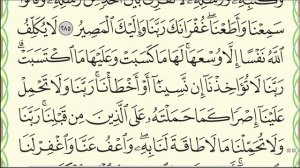 سَمِعْنَا وَأَطَعْنَا ۖ غُفْرَانَكَ رَبَّنَا وَإِلَيْكَ الْمَصِيرُ ٢٨٥ لَا يُكَلِّفُ
اللَّهُ نَفْسًا إِلَّا وُسْعَهَا ۚ لَهَا مَا كَسَبَتْ وَعَلَيْهَا مَا اكْتَسَبَتْ ۗ
رَبَّنَا لَا تُؤَاخِذْنَا إِن نَّسِينَا أَوْ أَخْطَأْنَا ۚ رَبَّنَا وَلَا تَحْمِلْ
عَلَيْنَا إِصْرًا كَمَا حَمَلْتَهُ عَلَى الَّذِينَ مِن قَبْلِنَا ۚ رَبَّنَا
وَلَا تُحَمِّلْنَا مَا لَا طَاقَةَ لَنَا بِهِ ۖ وَاعْفُ عَنَّا وَاغْفِرْ لَنَا